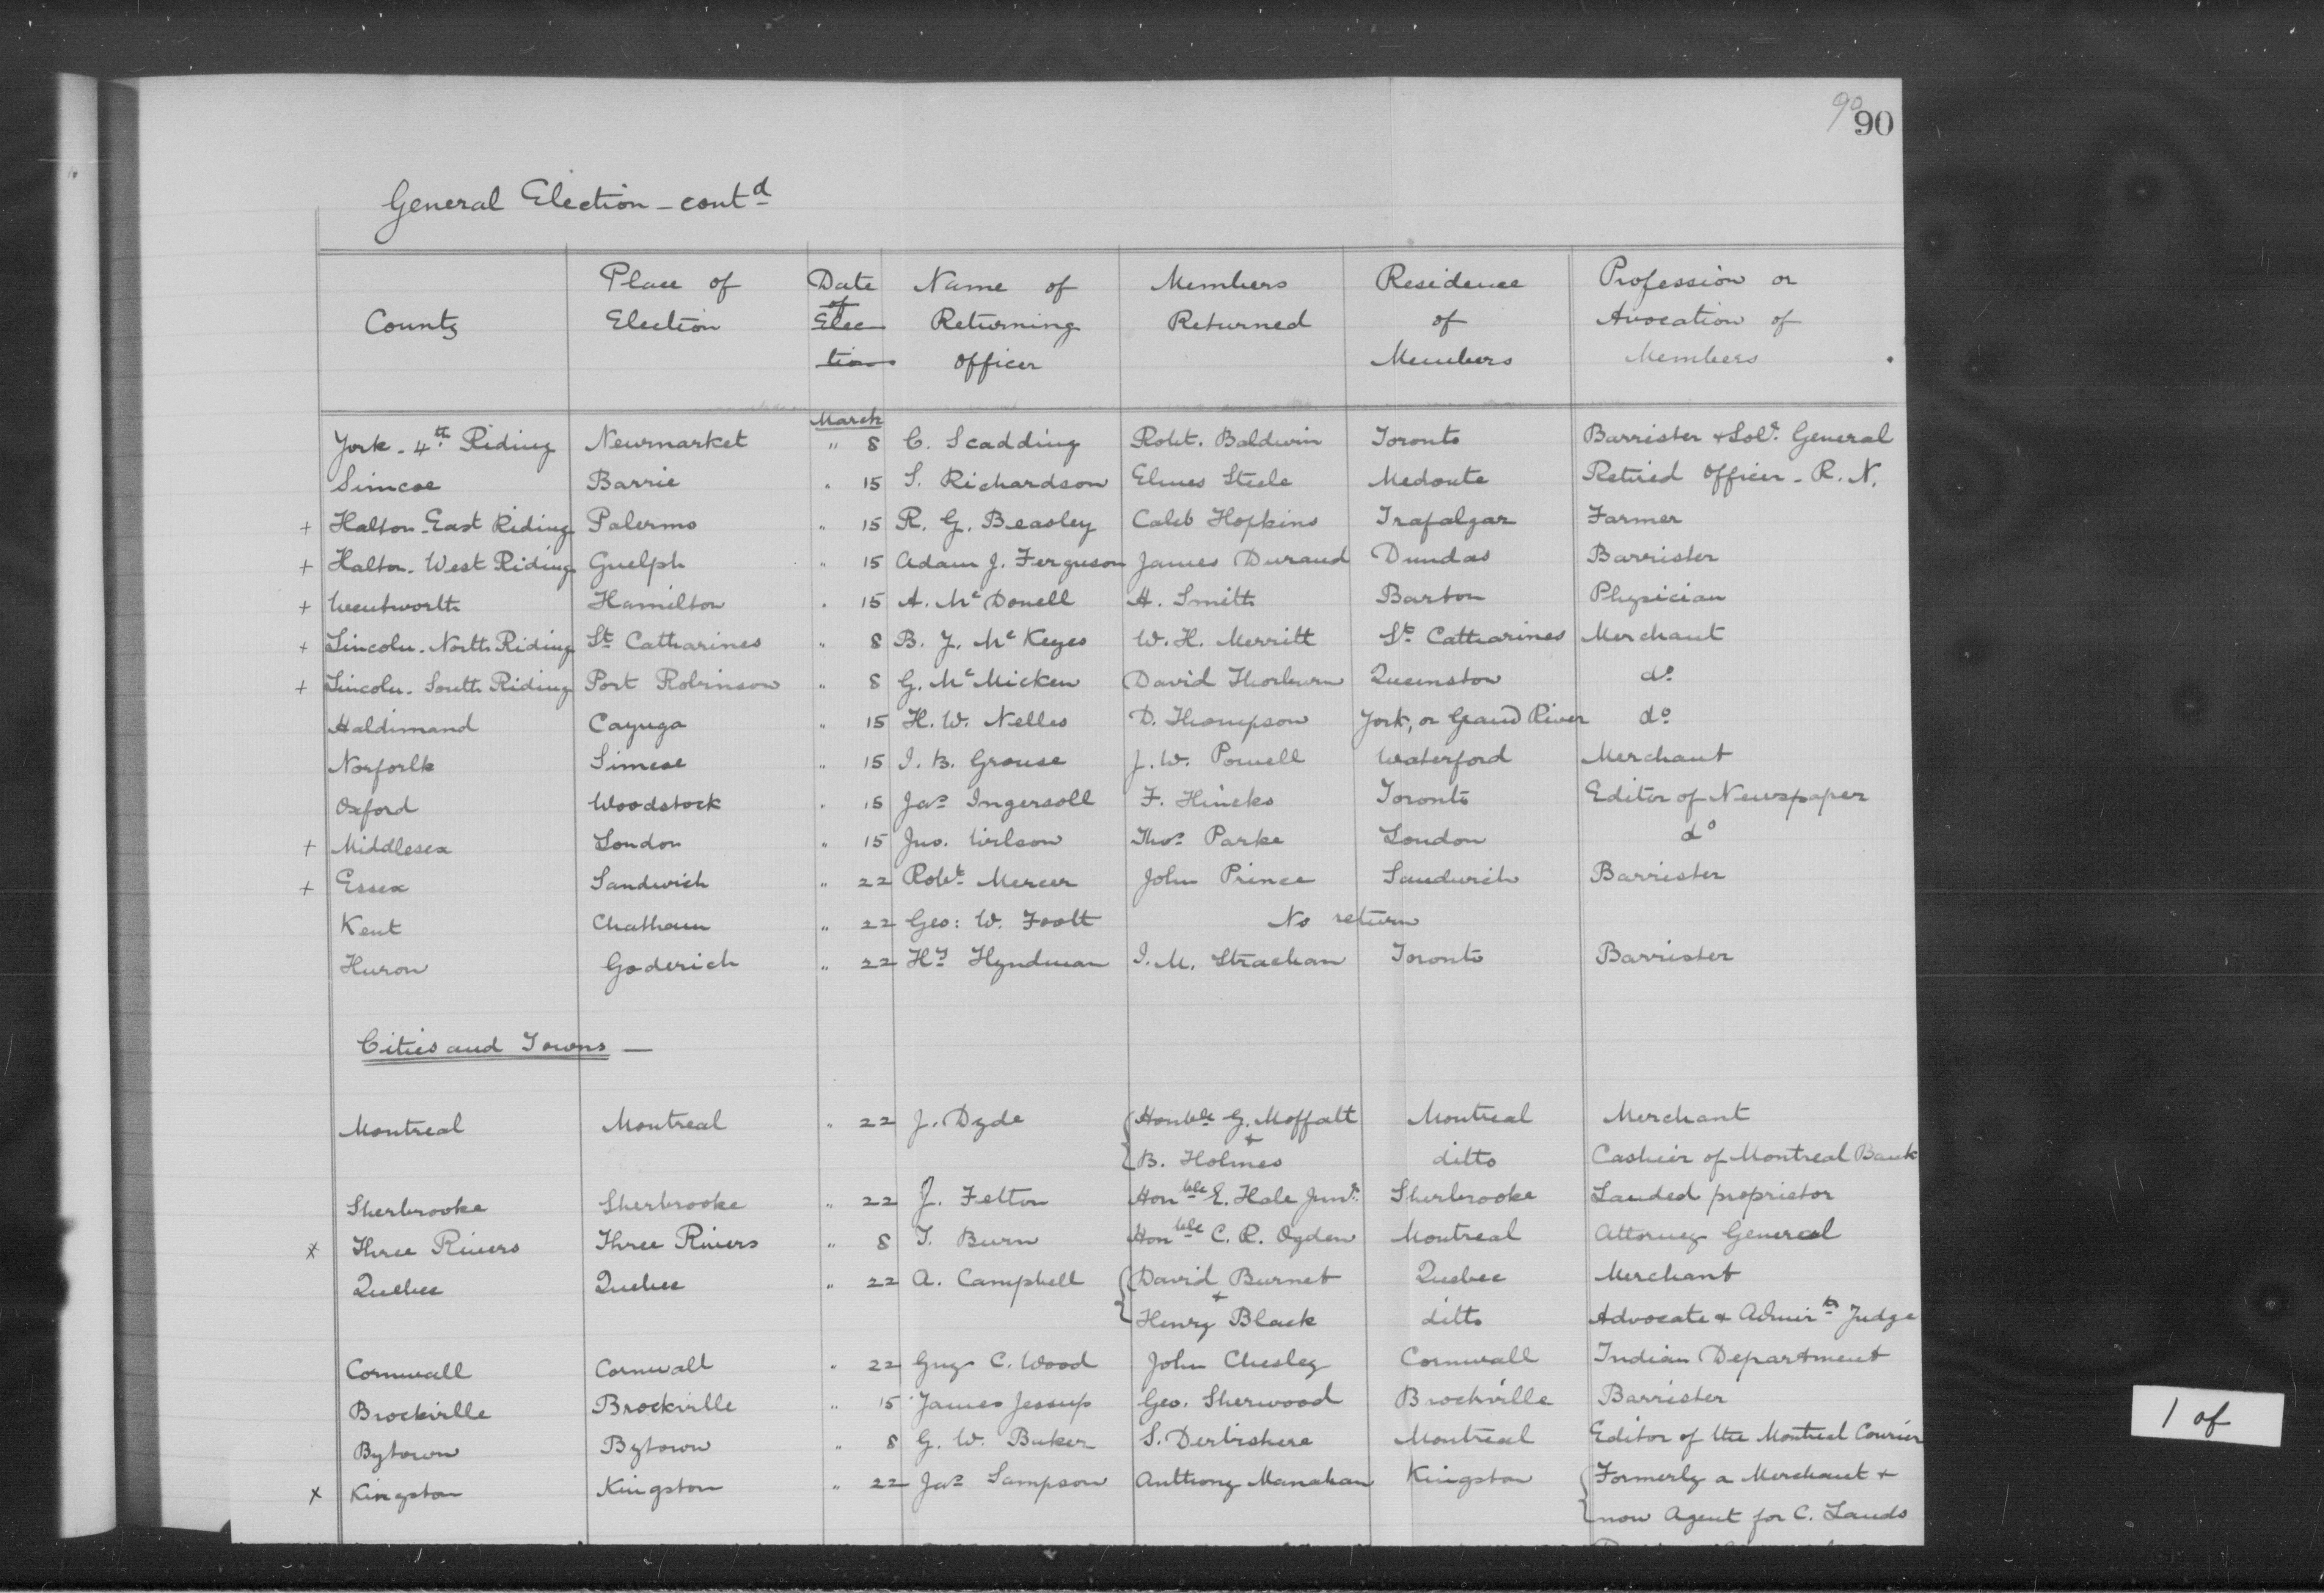 90
90
General Election - contd
County | Place of Election | Date of Election | Name of Returning Officer | Members Returned | Residence of Members | Profession or Avocation of Members
March
York - 4th Riding | Newmarket | " 8 | C. Scadding | Robt. Baldwin | Toronto | Barrister & Solr. General
Simcoe | Barrie | " 15 | S. Richardson | Elmes Steele | Medonte | Retired Officer - R. N.
+ Halton - East Riding | Palermo | " 15 | R. G. Beasley | Caleb Hopkins | Trafalgar | Farmer
+ Halton - West Riding | Guelph | " 15 | Adam J. Ferguson | James Durand | Dundas | Barrister
+ Wentworth | Hamilton | " 15 | A. McDonell | H. Smith | Barton | Physician
+ Lincoln - North Riding | St. Catharines | " 8 | B. Y. McKeyes | W. H. Merritt | St. Catharines | Merchant
+ Lincoln - South Riding | Port Robinson | " 8 | G. McMicken | David Thorburn | Queenston | do
Haldimand | Cayuga | " 15 | H. W. Nelles | D. Thompson | York, or Grand River | do
Norforlk | Simcoe | " 15 | I. B. Crouse | J. W. Powell | Waterford | Merchant
Oxford | Woodstock | " 15 | Jas Ingersoll | F. Hincks | Toronto | Editor of Newspaper
+ Middlesex | London | " 15 | Jno. Wilson | Thos Parke | London | do
+ Essex | Sandwich | " 22 | Robt Mercer | John Prince | Sandwich | Barrister
Kent | Chatham | " 22 | Geo: W. Foott | No return
Huron | Goderich | " 22 | Hy Hyndman | J. M. Strachan | Toronto | Barrister
Cities and Towns -
Montreal | Montreal | " 22 | J. Dyde | Honble G. Moffatt | Montreal | Merchant
& B. Holmes | ditto | Cashier of Montreal Bank
Sherbrooke | Sherbrooke | " 22 | J. Felton | Honble E. Hale Junr. | Sherbrooke | Landed proprietor
x Three Rivers | Three Rivers | " 8 | T. Burn | Honble C. R. Ogden | Montreal | Attorney General
Quebec | Quebec | " 22 | A. Campbell | David Burnet | Quebec | Merchant
& Henry Black | ditto | Advocate & Admirty Judge
Cornwall | Cornwall | " 22 | Guy C. Wood | John Chesley | Cornwall | Indian Department
Brockville | Brockville | " 15 | James Jessup | Geo. Sherwood | Brockville | Barrister
Bytown | Bytown | " 8 | G. W. Baker | S. Derbishere | Montreal | Editor of the Montreal Courier
x Kingston | Kingston | " 22 | Jas Sampson | Anthony Manahan | Kingston | Formerly a Merchant &
now Agent for C. Lands
1 of